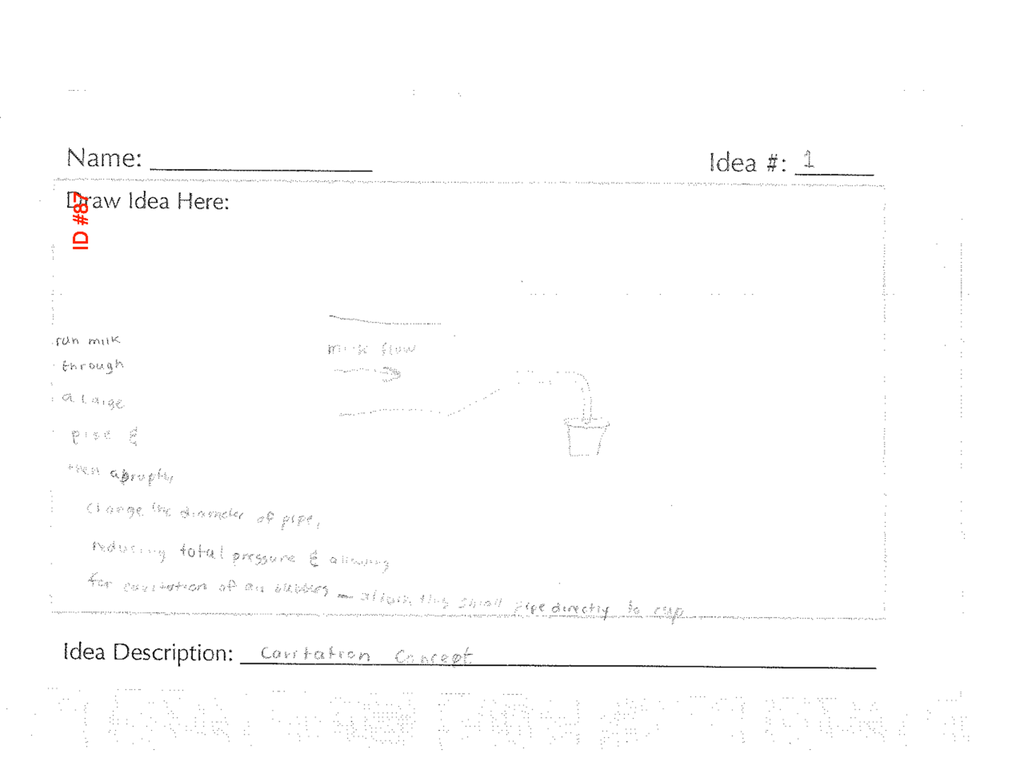 Name:
Idea #: 1
Draw Idea Here:
ID #87
run milk
through
a large
pipe &
then abruptly
change the diameter of pipe,
reducing total pressure & allowing
for cavitation of air bubbles — attach this small pipe directly to cup
milk flow
Idea Description: Cavitation Concept